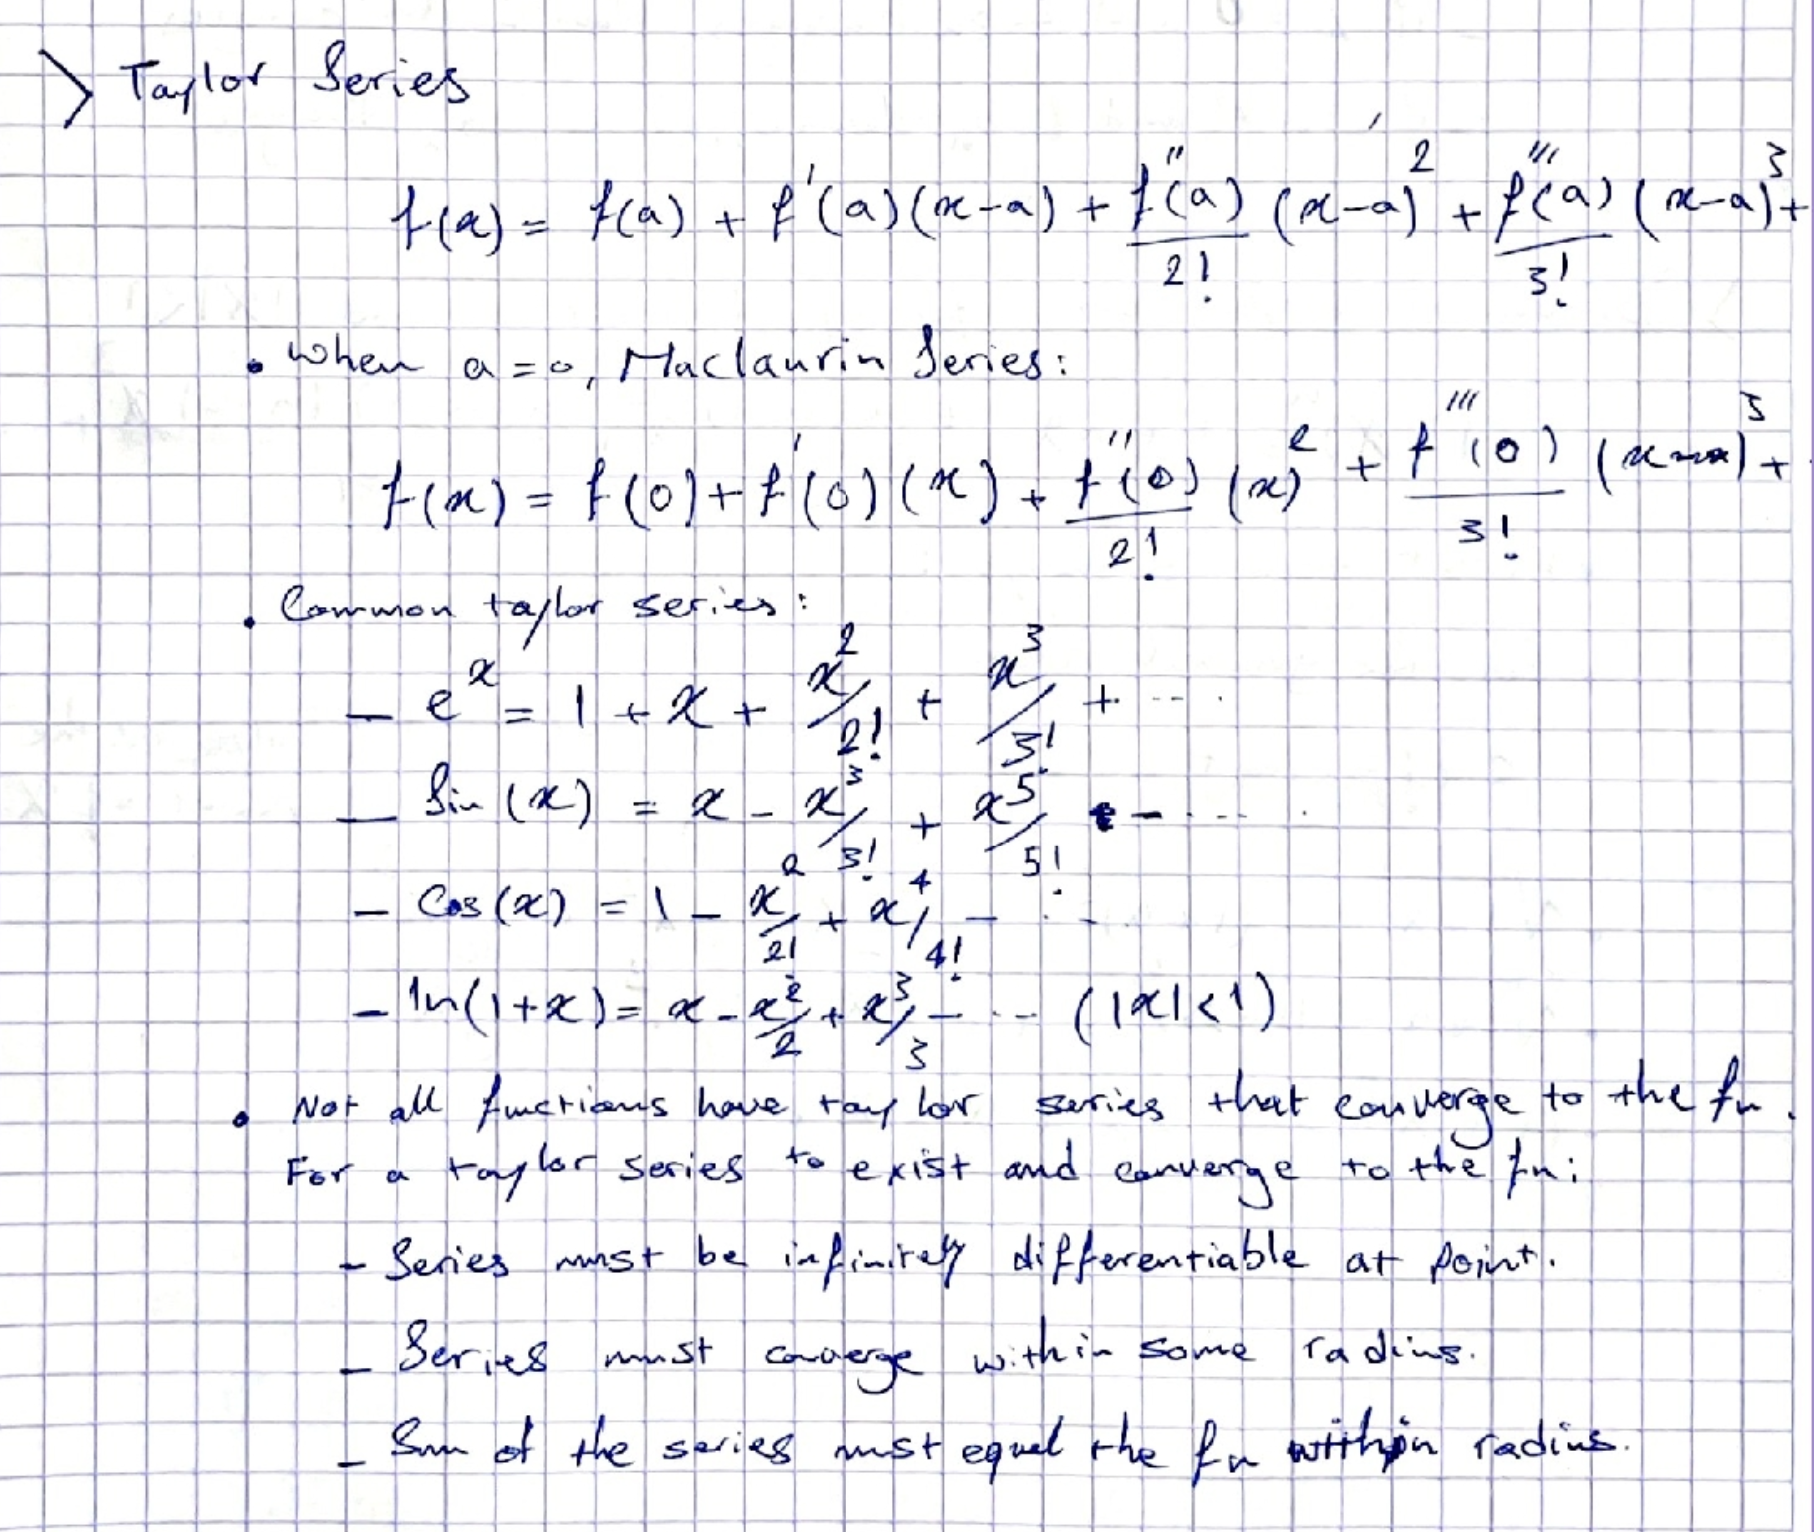 > Taylor Series
f(x) = f(a) + f'(a)(x-a) + f''(a)/2! (x-a)² + f'''(a)/3! (x-a)³ +
• When a=0, Maclaurin Series:
f(x) = f(0) + f'(0)(x) + f''(0)/2! (x)² + f'''(0)/3! (x)³ +
• Common taylor series:
- eˣ = 1 + x + x²/2! + x³/3! + ....
- Sin(x) = x - x³/3! + x⁵/5! - ....
- Cos(x) = 1 - x²/2! + x⁴/4! - ...
- ln(1+x) = x - x²/2 + x³/3 - ... (|x|<1)
• Not all functions have taylor series that converge to the fn.
For a taylor series to exist and converge to the fn:
- Series must be infinitely differentiable at point.
- Series must converge within some radius.
- Sum of the series must equal the fn within radius.